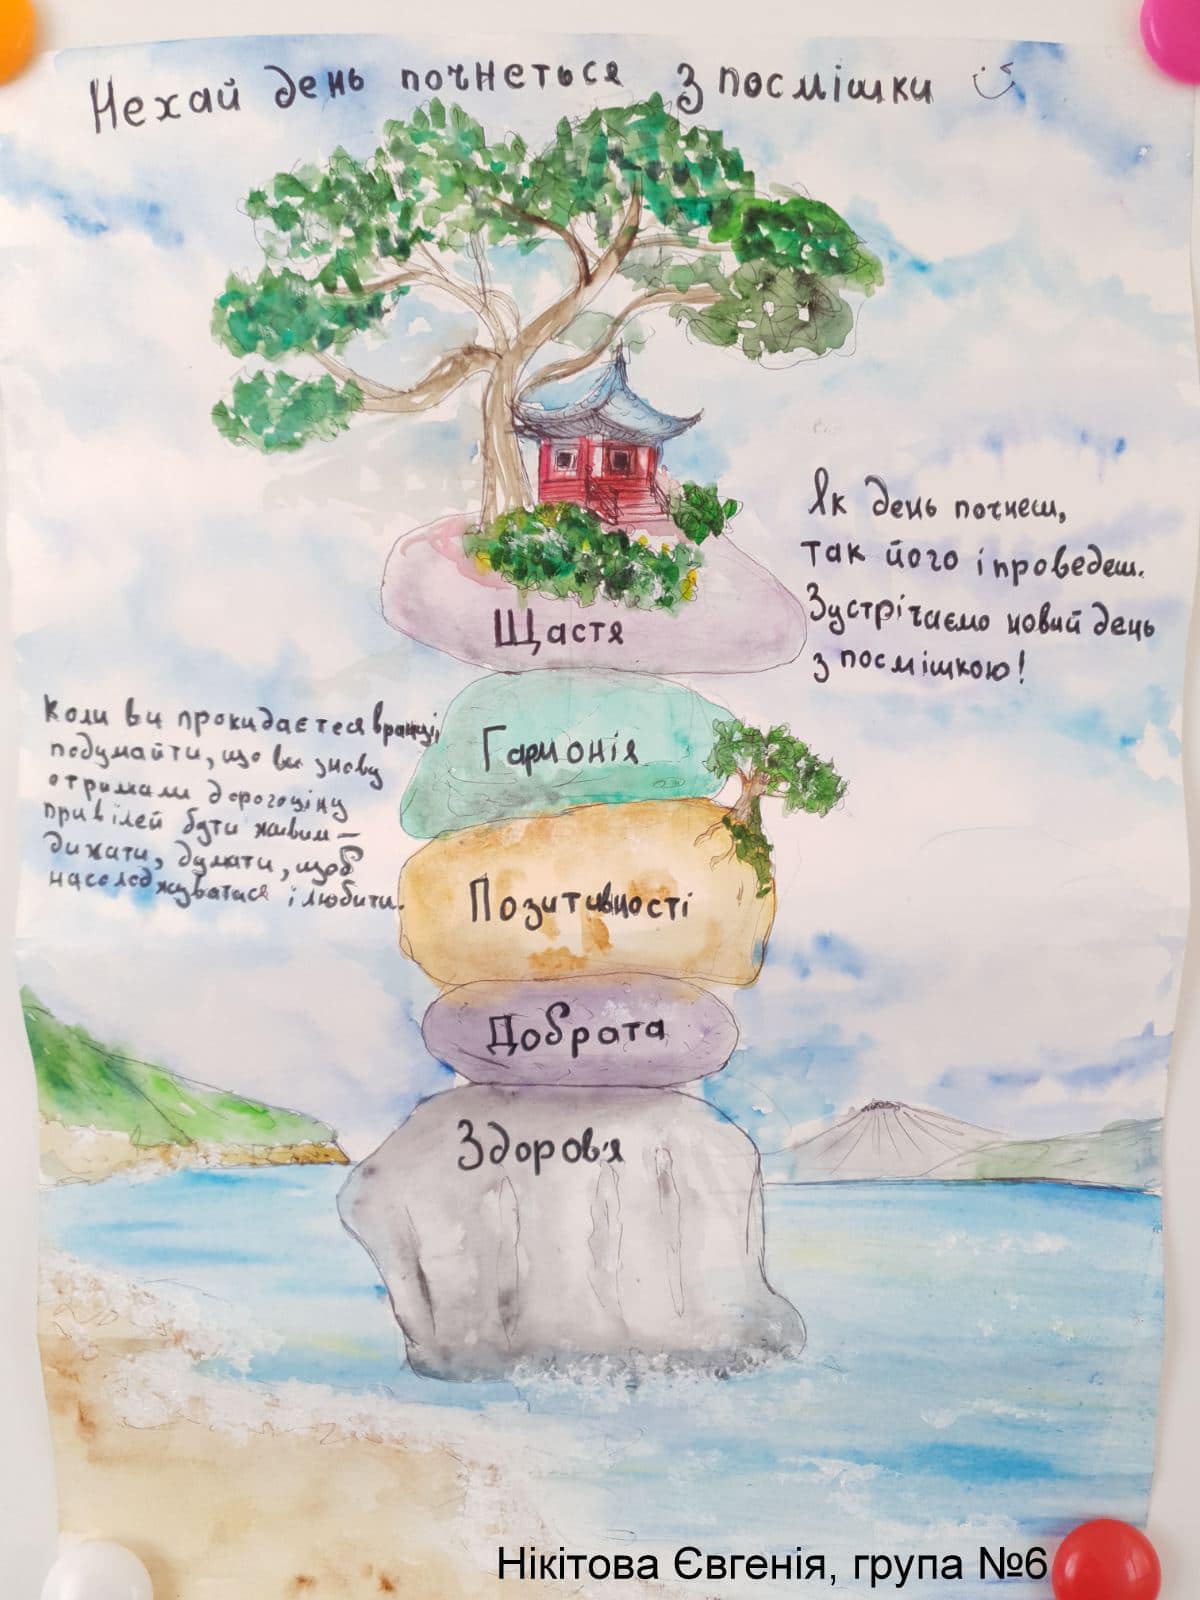 Нехай день почнеться з посмішки
Як день почнеш,
так його і проведеш.
Зустрічаємо новий день
з посмішкою!
Щастя
Гармонія
Коли ви прокидаєтеся вранці,
подумайти, що ви знову
отримали дорогоціну
привілей бути живим –
дихати, думати, щоб
насолоджуватися і любити.
Позитивності
Доброта
Здоров'я
Нікітова Євгенія, група №6